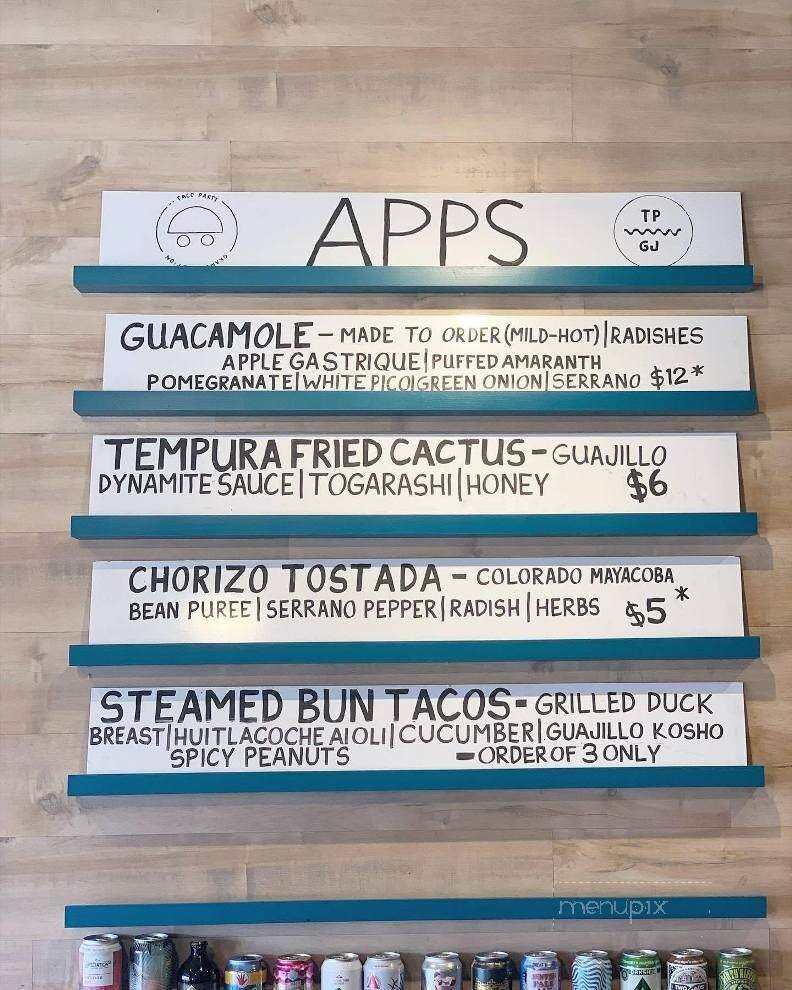 TACO PARTY
APPS
TP
GJ
GUACAMOLE - MADE TO ORDER (MILD-HOT) | RADISHES
APPLE GASTRIQUE | PUFFED AMARANTH
POMEGRANATE | WHITE PICO | GREEN ONION | SERRANO $12*
TEMPURA FRIED CACTUS - GUAJILLO
DYNAMITE SAUCE | TOGARASHI | HONEY $6
CHORIZO TOSTADA - COLORADO MAYACOBA
BEAN PUREE | SERRANO PEPPER | RADISH | HERBS $5*
STEAMED BUN TACOS - GRILLED DUCK
BREAST | HUITLACOCHE AIOLI | CUCUMBER | GUAJILLO KOSHO
SPICY PEANUTS - ORDER OF 3 ONLY
menupix